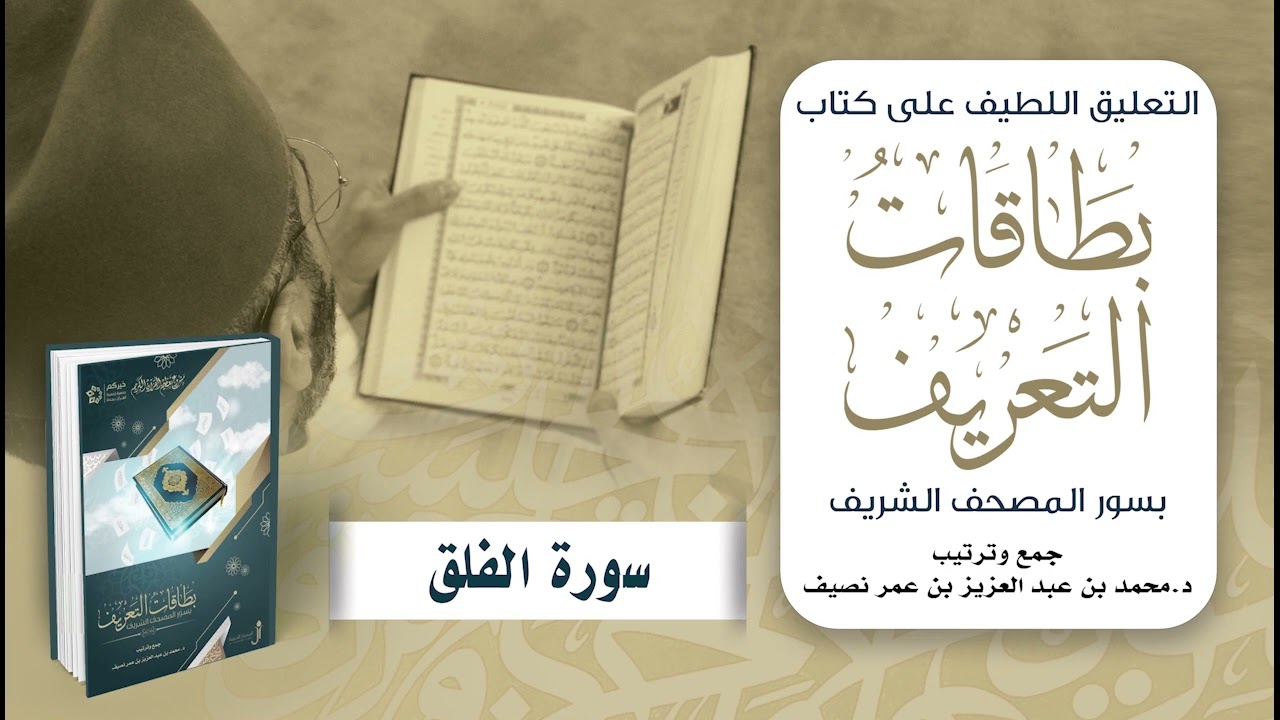 التعليق اللطيف على كتاب
بطَاقَاتُ
التَعَرِيف
بسور المصحف الشريف
جمع وترتيب
د.محمد بن عبد العزيز بن عمر نصيف
سورة الفلق
خيركم
بطاقات التعريف
بسور المصحف الشريف
جمع وترتيب
د. محمد بن عبد العزيز بن عمر نصيف